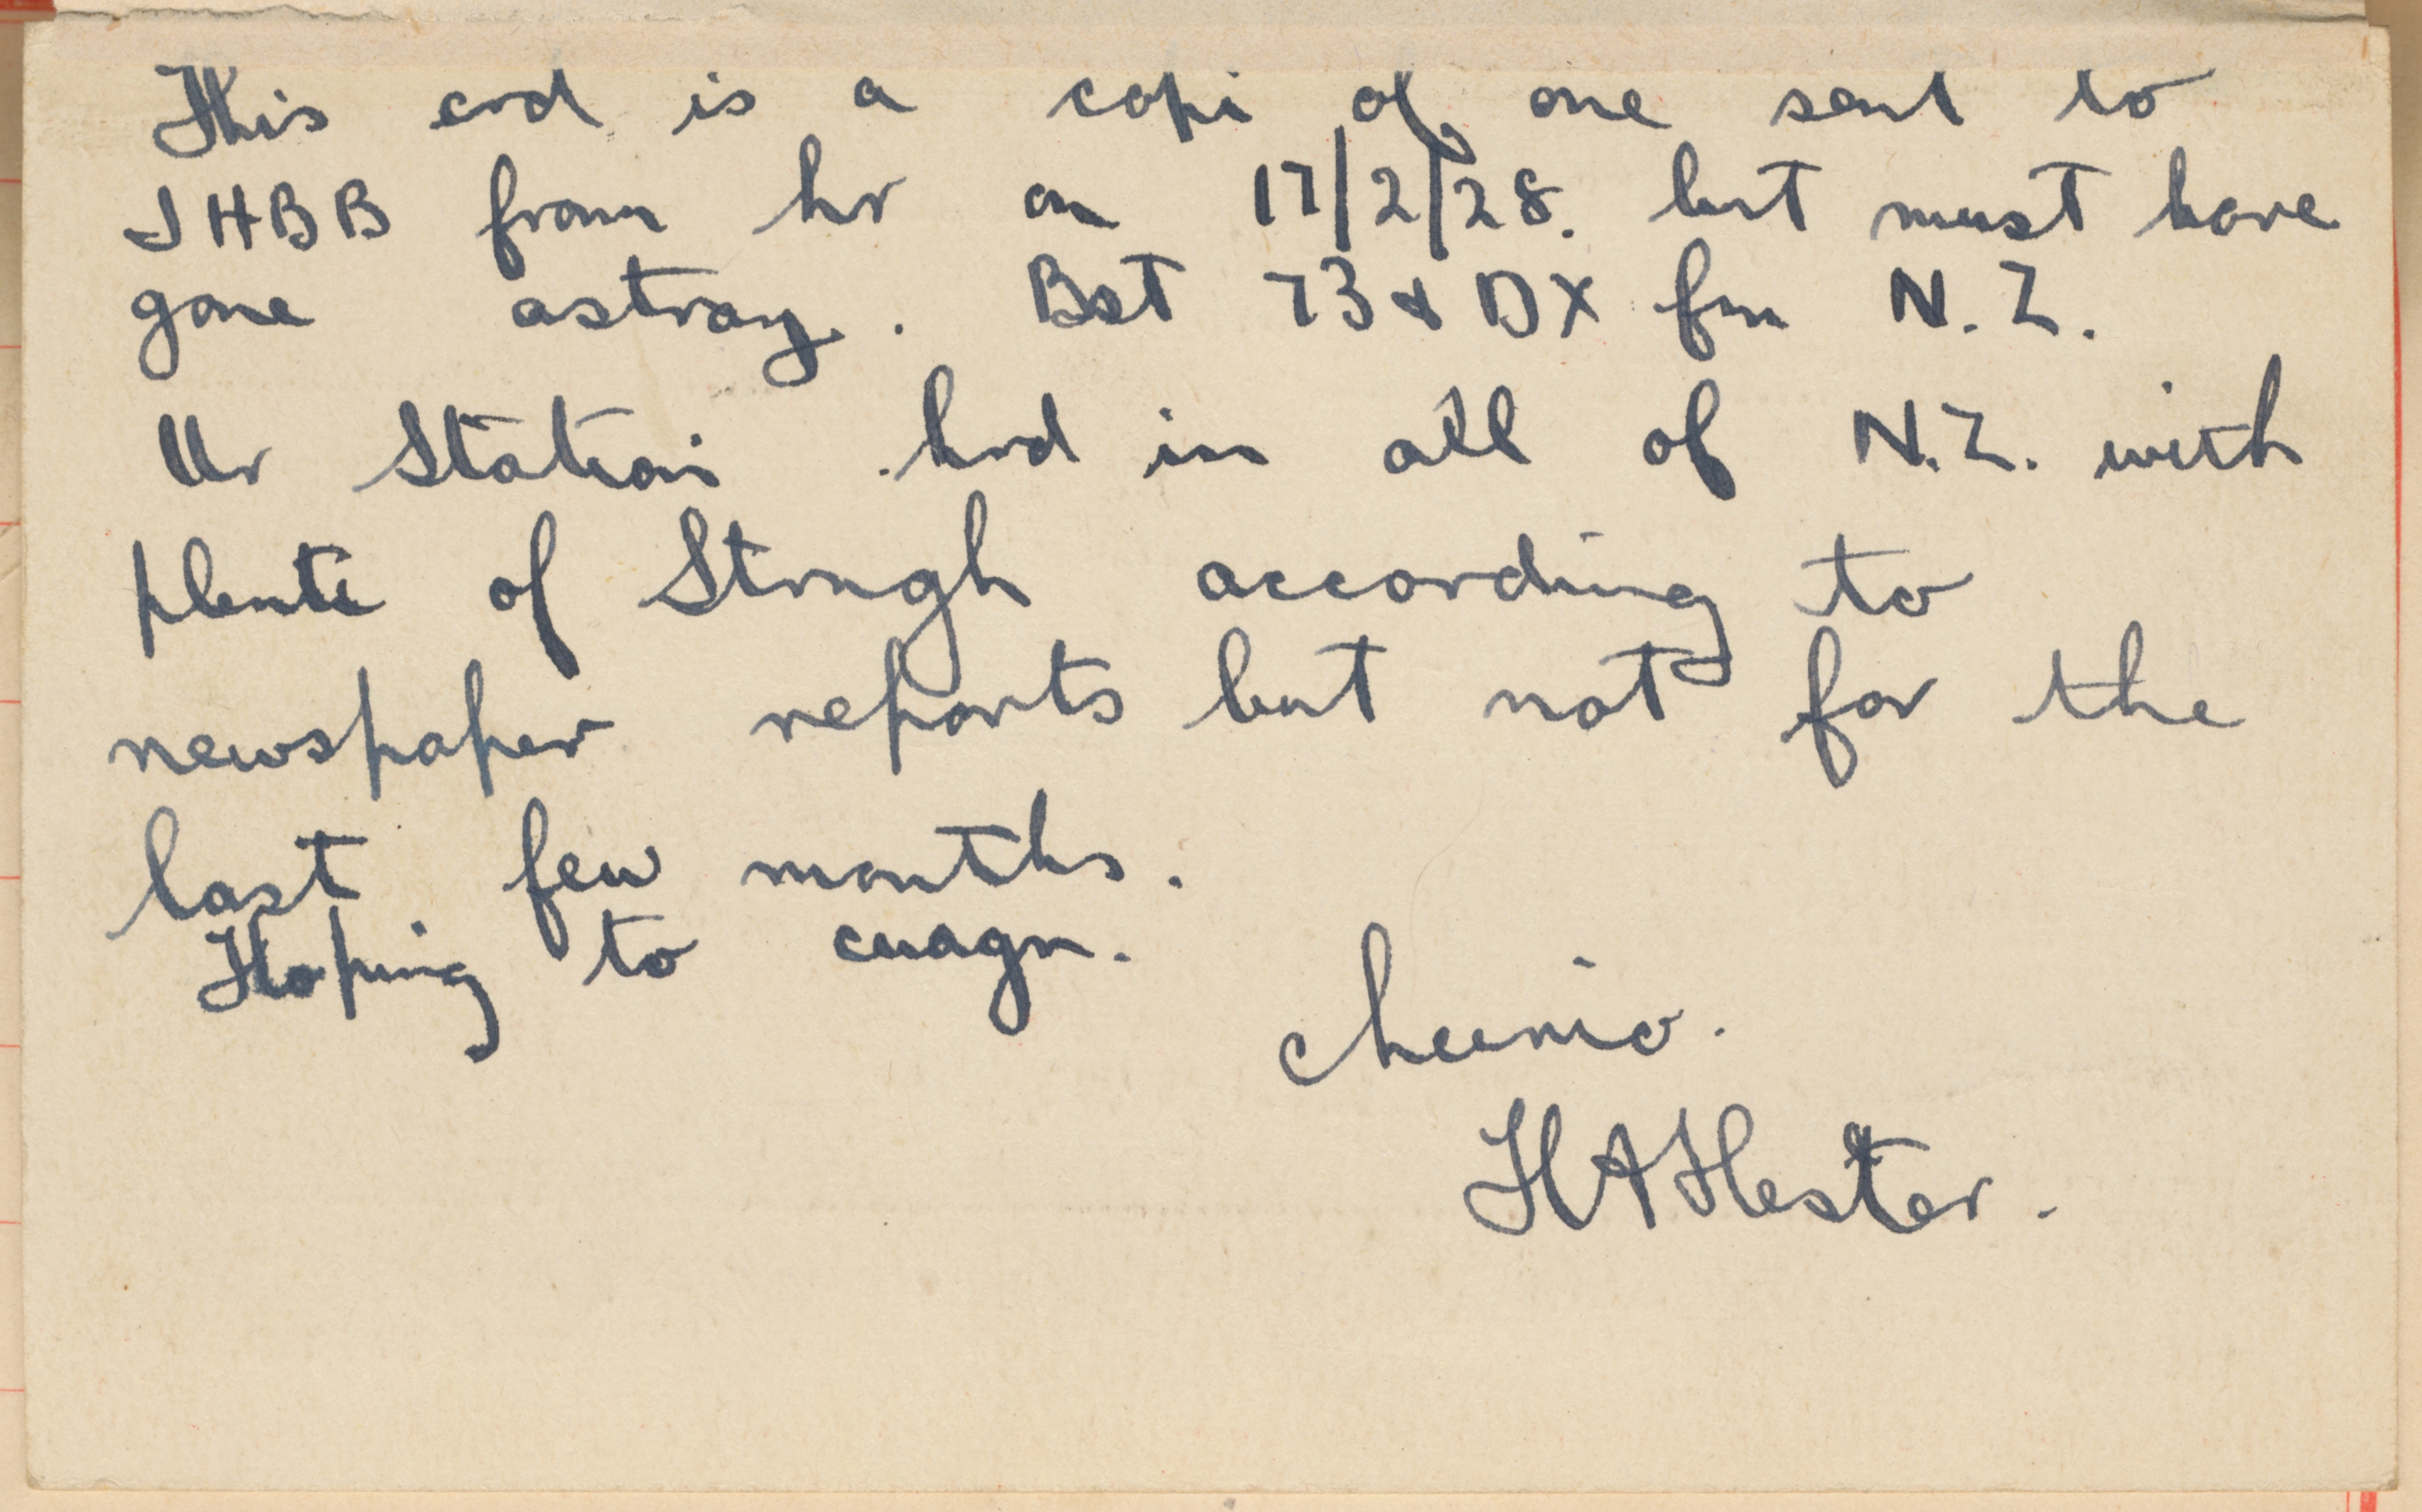 This crd is a copi of one sent to
JHBB from hr on 17/2/28. but must have
gone astray. Bst 73 & DX fm N.Z.
Ur Station hrd in all of N.Z. with
plenti of Strngh according to
newspaper reports but not for the
last few months.
Hoping to cuagn.
cheerio.
HAHester.